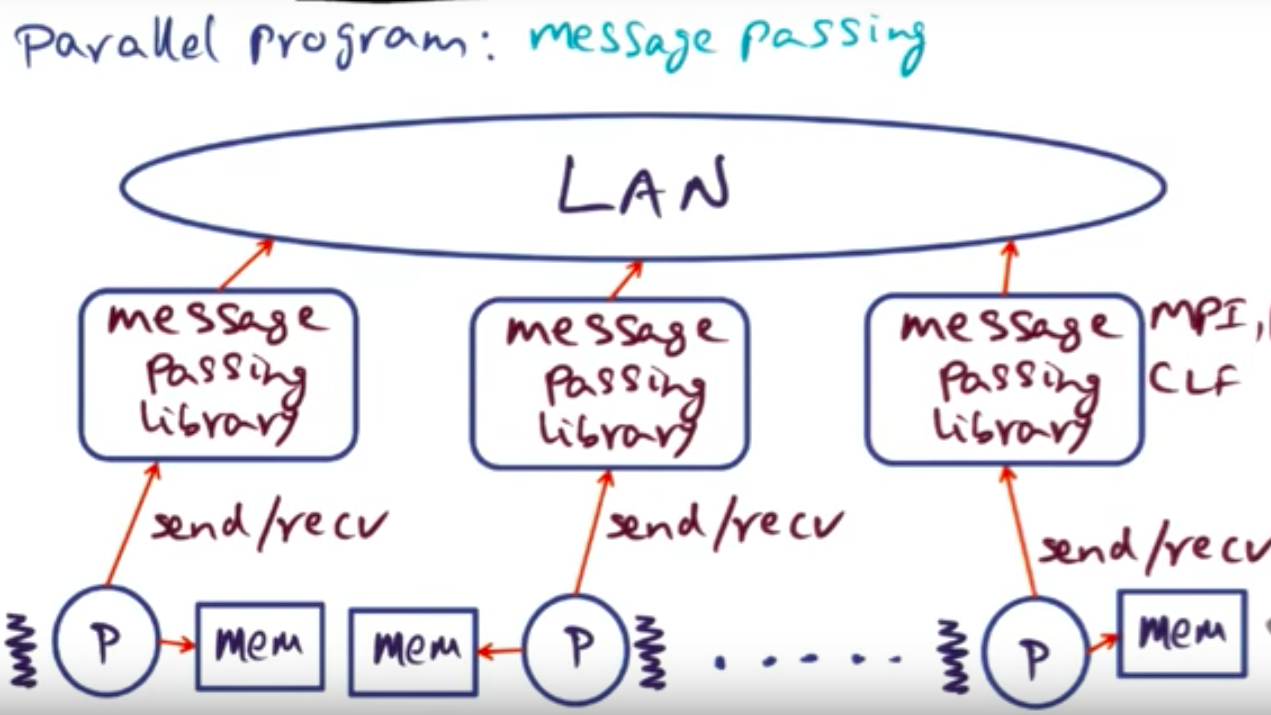 Parallel program: message passing
LAN
message
passing
library
message
passing
library
message
passing
library
MPI,
CLF
send/recv
send/recv
send/recv
P
mem
mem
P
P
mem